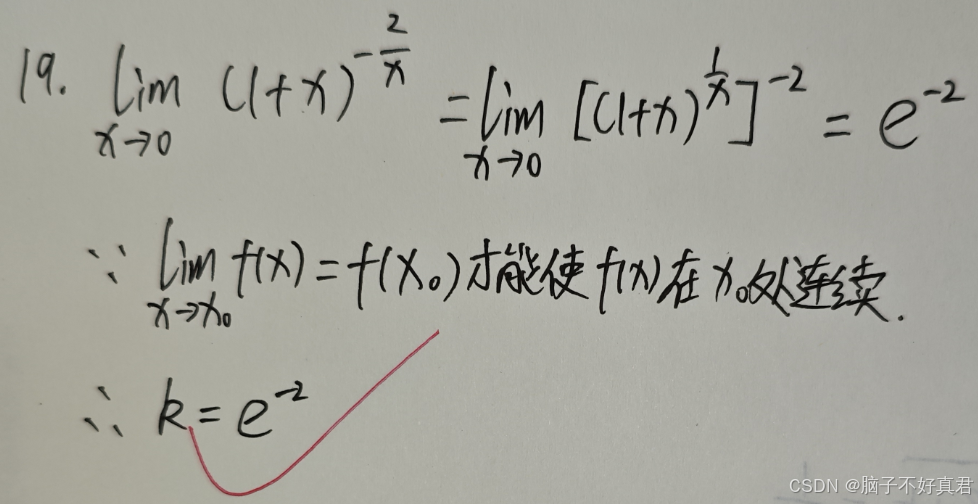 19. lim x→0 (1+x)^{-2/x} = lim x→0 [(1+x)^{1/x}]^{-2} = e^{-2}
∵ lim x→x₀ f(x) = f(x₀) 才能使 f(x) 在 x₀处连续.
∴ k = e^{-2}
CSDN @脑子不好真君